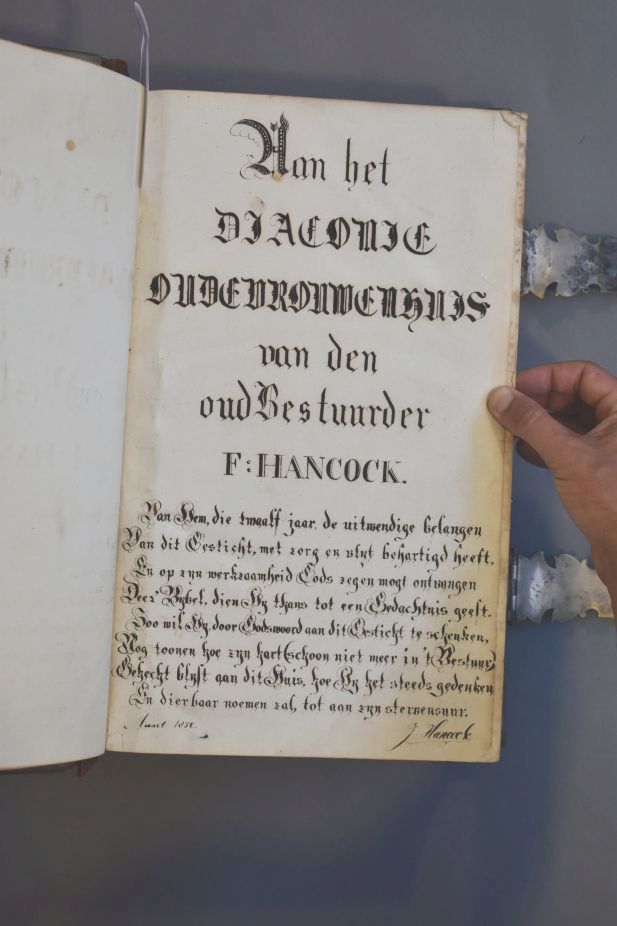 Aan het
DIACONIE
OUDEVROUWENHUIS
van den
oudBestuurder
F: HANCOCK.
Van Hem, die twaalf jaar, de uitwendige belangen
Van dit Gesticht, met zorg en vlyt behartigd heeft.
En op zyn werkzaamheid Gods zegen mogt ontvangen
Deez' Bybel, dien Hy thans tot een Gedachtnis geeft.
Zoo wil Hy, door Godswoord aan dit Gesticht te schenken,
Nog toonen hoe zyn hart (schoon niet meer in 't Bestuur)
Gehecht blyft aan dit Huis, hoe Hy het steeds gedenken
En dierbaar noemen zal, tot aan zyn stervensuur.
1850.
Hancock.